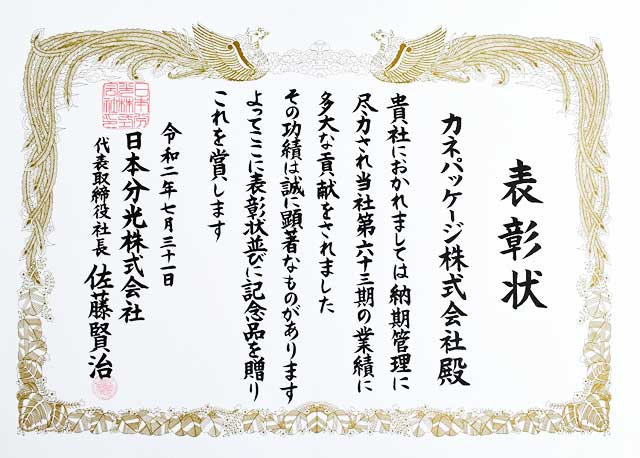 表彰状
カネパッケージ株式会社殿
貴社におかれましては納期管理に
尽力され当社第六十三期の業績に
多大な貢献をされました
その功績は誠に顕著なものがあります
よってここに表彰状並びに記念品を贈り
これを賞します
令和二年七月三十一日
日本分光株式会社
代表取締役社長 佐藤賢治